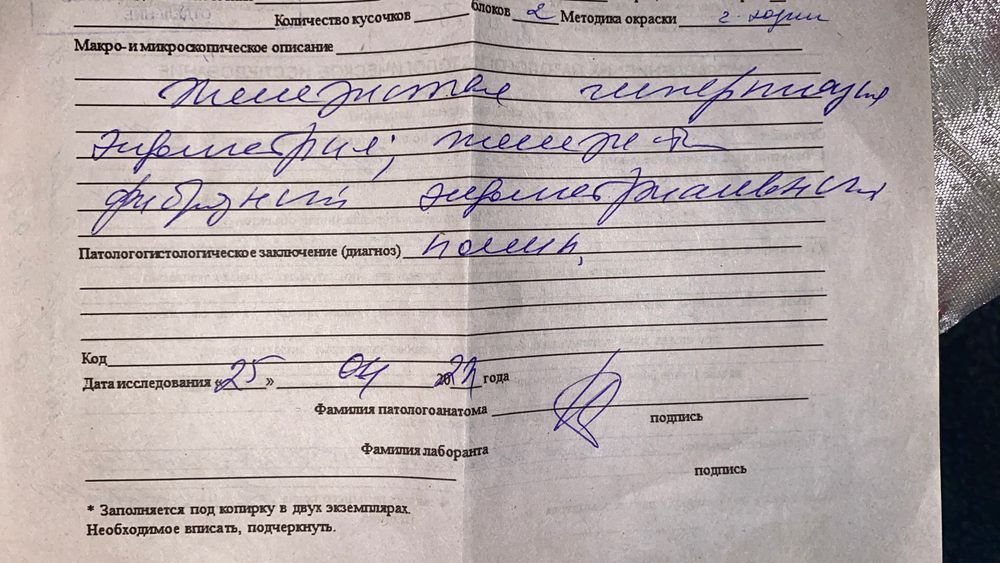 Количество кусочков ____ блоков 2 Методика окраски г-эозин
Макро- и микроскопическое описание
Железистая гиперплазия
эндометрия; железисто-
фиброзный эндометриальный
Патологогистологическое заключение (диагноз) полип.
Код
Дата исследования «25» 04 2021 года
Фамилия патологоанатома
подпись
Фамилия лаборанта
подпись
* Заполняется под копирку в двух экземплярах.
Необходимое вписать, подчеркнуть.